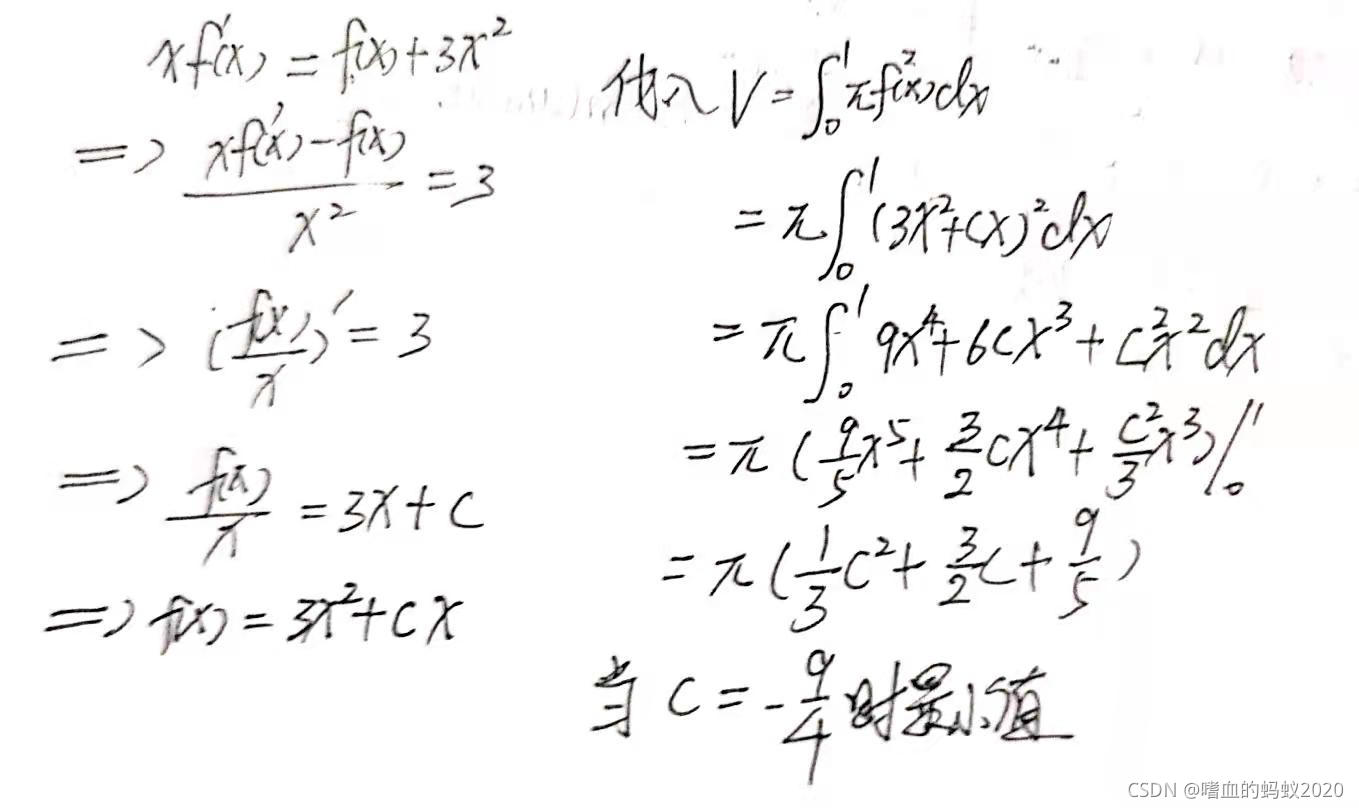 xf'(x) = f(x) + 3x²
=> (xf'(x) - f(x)) / x² = 3
=> (f(x)/x)' = 3
=> f(x)/x = 3x + C
=> f(x) = 3x² + Cx
代入 V = ∫₀¹ πf²(x)dx
= π∫₀¹ (3x² + Cx)² dx
= π∫₀¹ 9x⁴ + 6Cx³ + C²x² dx
= π(9/5 x⁵ + 3/2 Cx⁴ + C²/3 x³)|₀¹
= π(1/3 C² + 3/2 C + 9/5)
当 C = -9/4 时最小值
CSDN @嗜血的蚂蚁2020